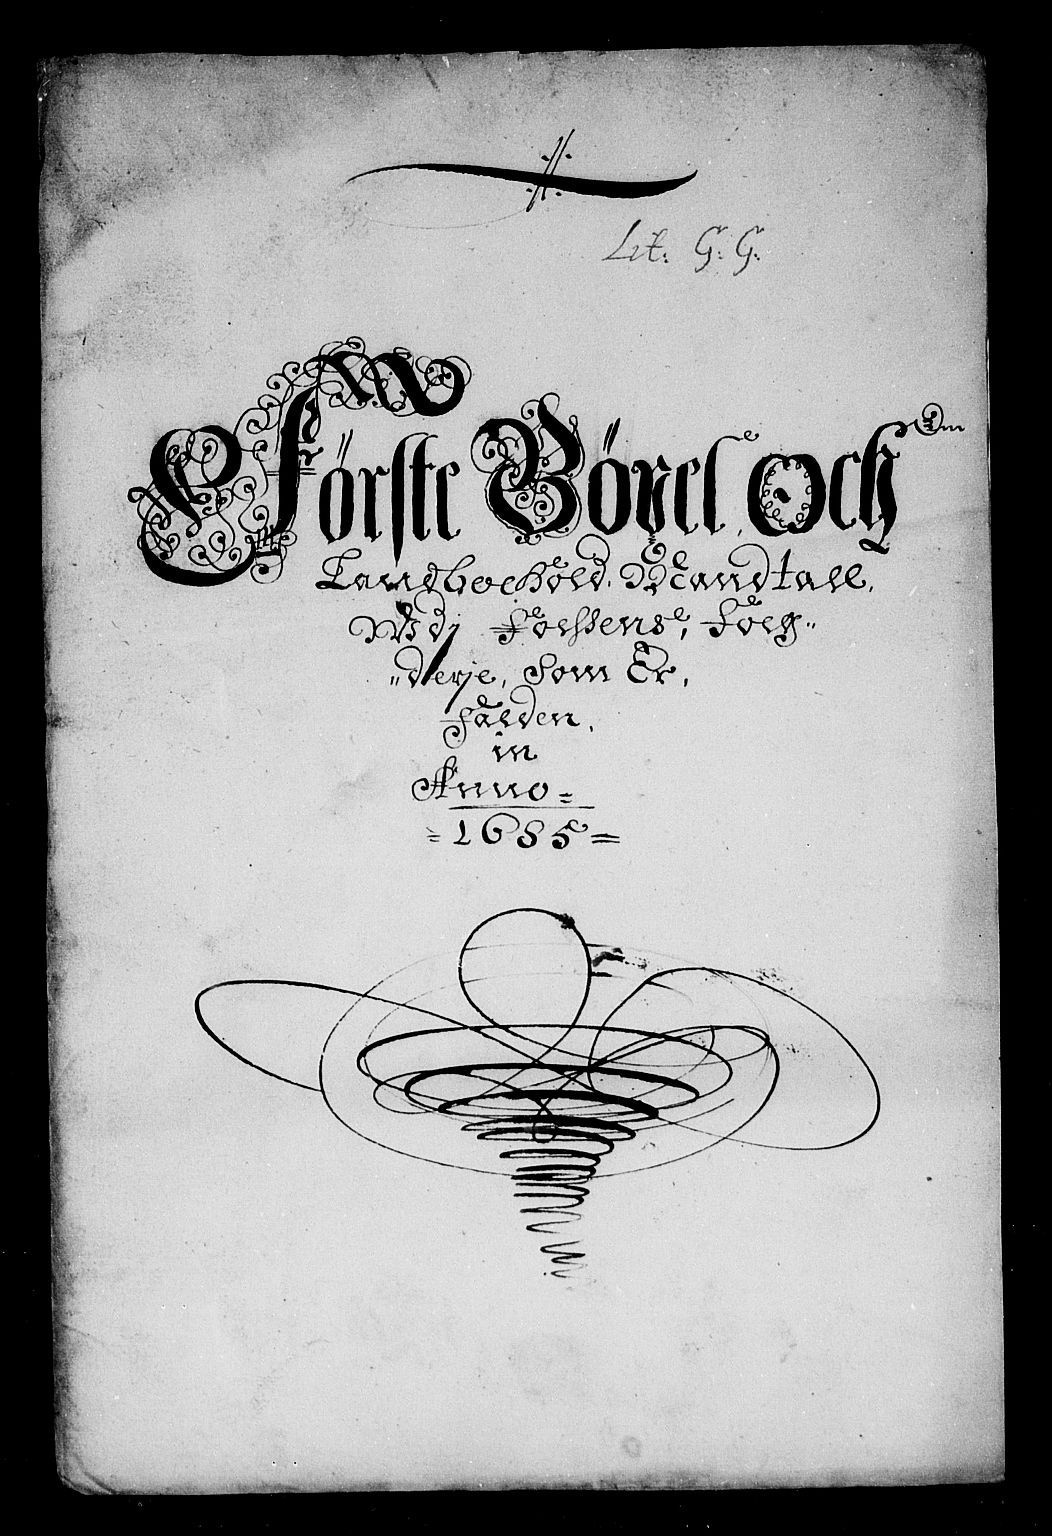 Lit. G. G.
Förste Böxel Och
Landbochhold Mandtall,
Udj Fossens, Foug-
derje, som Er,
falden,
in
Anno =
= 1685 =